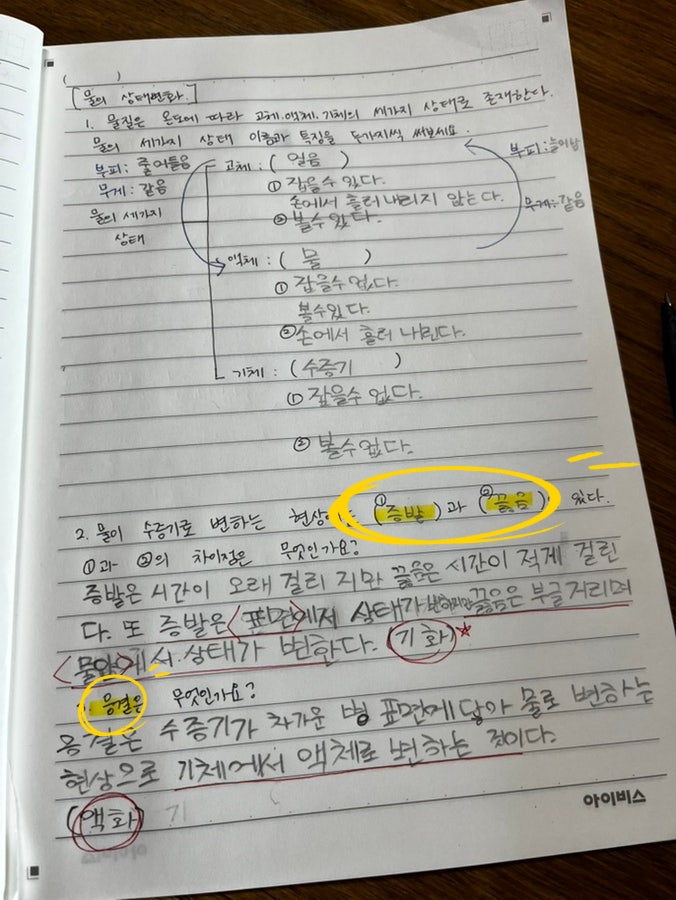 ( )
[물의 상태변화.]
1. 물질은 온도에 따라 고체.액체.기체의 세가지 상태로 존재한다.
물의 세가지 상태 이름과 특징을 두가지씩 써보세요.
부피: 줄어들음
무게: 같음
물의 세가지
상태
고체: ( 얼음 )
① 잡을수 있다.
손에서 흘러 내리지 않는다.
② 볼수 있다.
부피: 늘어남
무게: 같음
액체: ( 물 )
① 잡을수 없다.
볼수있다.
②손에서 흘러 내린다.
기체: ( 수증기 )
① 잡을수 없다.
② 볼수 없다.
2. 물이 수증기로 변하는 현상 (①증발)과 (②끓음)이 있다.
①과 ②의 차이점은 무엇인가요?
증발은 시간이 오래 걸리 지만 끓음은 시간이 적게 걸린
다. 또 증발은 <표면>에서 상태가 변하지만 끓음은 부글거리며
<물안>에서 상태가 변화한다. (기화)★
응결은 무엇인가요?
응결은 수증기가 차가운 병 표면에 닿아 물로 변하는
현상으로 기체에서 액체로 변하는 것이다.
(액화) 기
아이비스